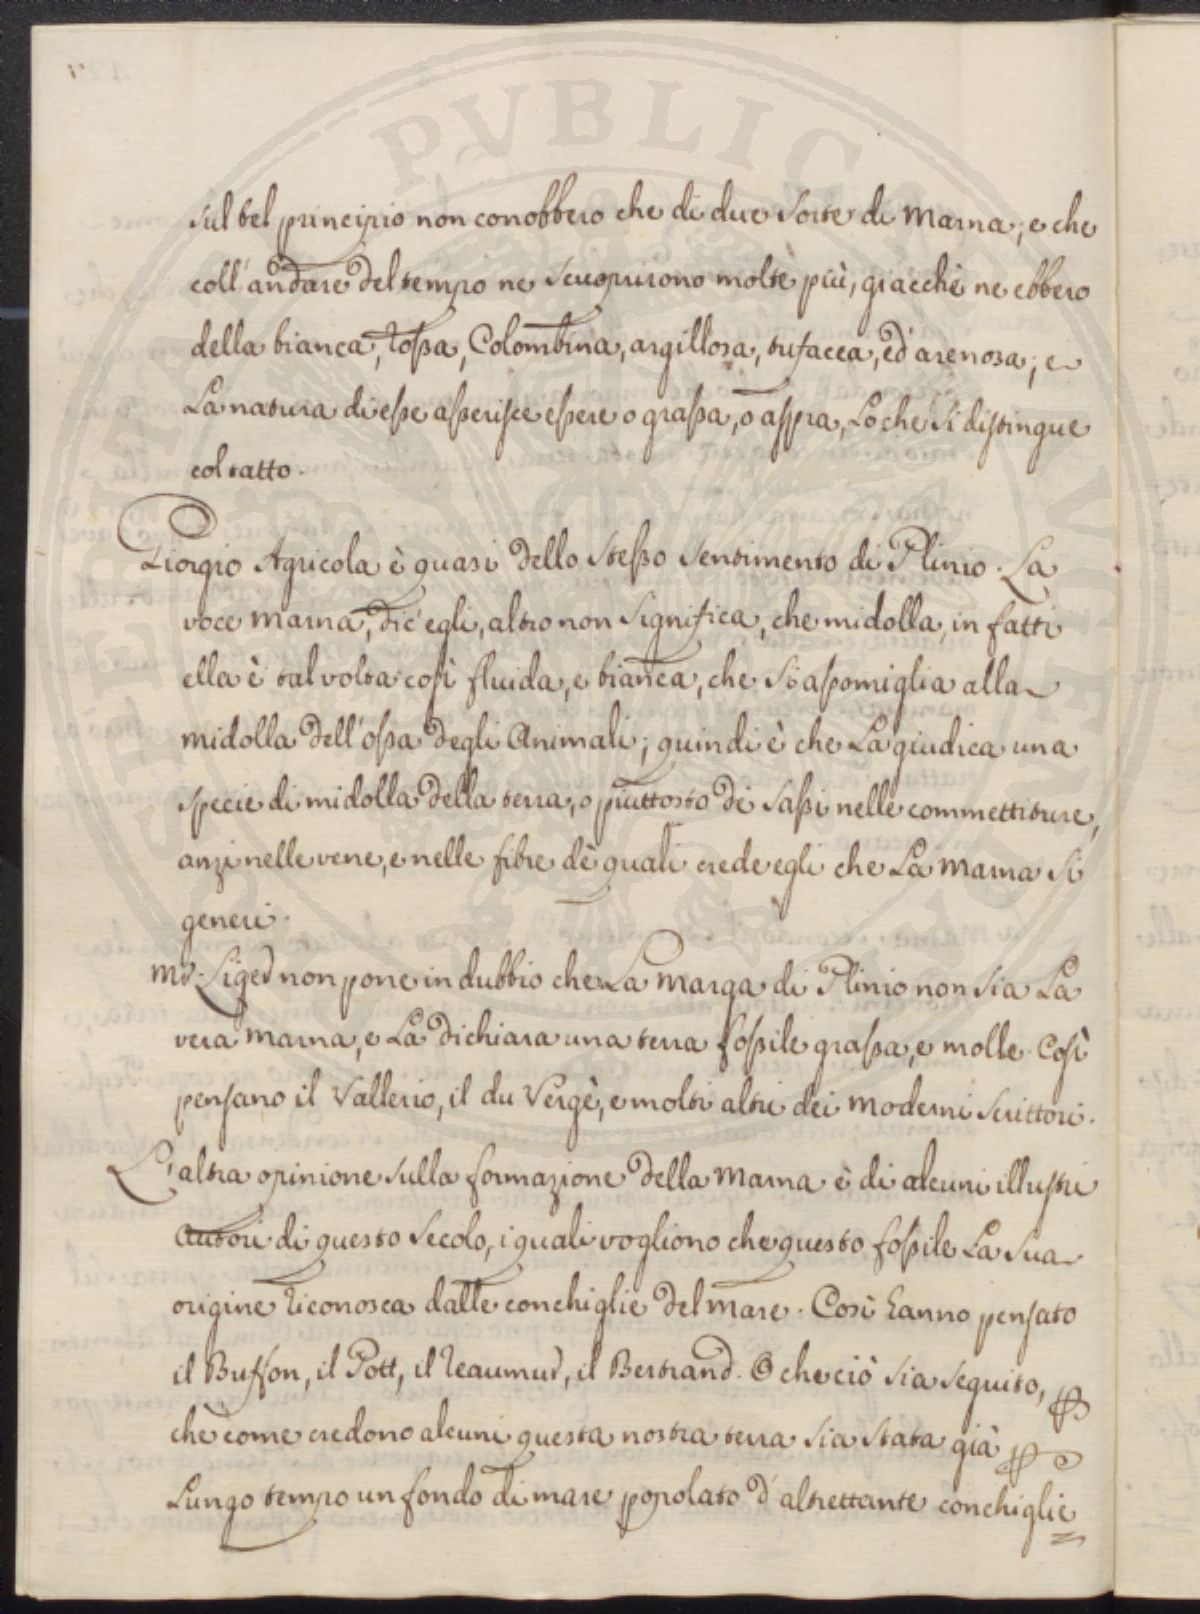 sul bel principio non conobbero che di due sorte di Marna; e che
coll'andare del tempo ne scuoprirono molte più, giacchè ne ebbero
della bianca, rossa, Colombina, argillosa, tufacea, ed arenosa; e
La natura di esse asserisce essere o grassa, o aspra, Lo che si distingue
col tatto.
Giorgio Agricola è quasi dello stesso sentimento di Plinio. La
voce Marna, dic'egli, altro non significa, che midolla, in fatti
ella è tal volta così fluida, e bianca, che si assomiglia alla
midolla dell'ossa degli Animali; quindi è che La giudica una
specie di midolla della terra, o piuttosto de sassi nelle commettiture,
anzi nelle vene, e nelle fibre de quali crede egli che La Marna si
generi.
Mr. Liger non pone in dubbio che La Marga di Plinio non sia La
vera Marna, e La dichiara una terra fossile grassa, e molle. Così
pensano il Vallerio, il du Vergè, e molti altri dei Moderni Scrittori.
L'altra opinione sulla formazione della Marna è di alcuni illustri
Autori di questo Secolo, i quali vogliono che questo fossile La sua
origine riconosca dalle conchiglie del Mare. Così hanno pensato
il Buffon, il Pott, il Reaumur, il Bertrand. O che ciò sia seguito,
chè come credono alcuni questa nostra terra sia stata già
Lungo tempo un fondo di mare popolato d'altrettante conchiglie
PVBLICA